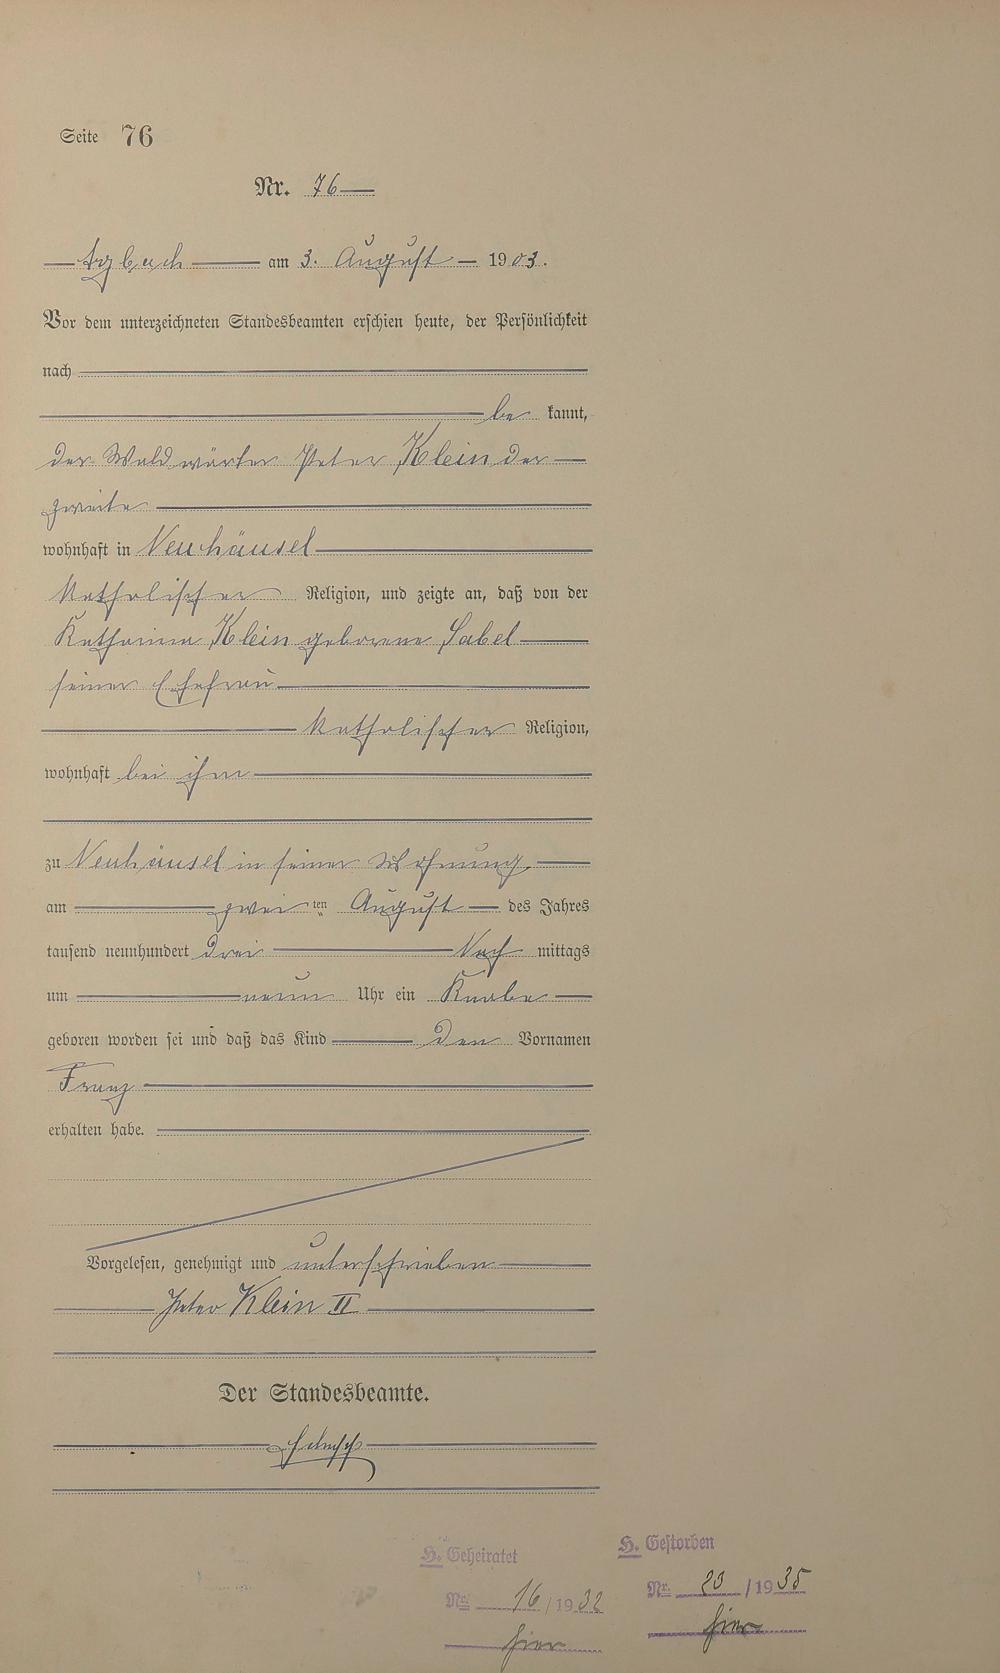 Seite 76
Nr. 76
Arzbach am 3. August 1903.
Vor dem unterzeichneten Standesbeamten erschien heute, der Persönlichkeit
nach
be kannt,
der Waldwärter Peter Klein der
zweite
wohnhaft in Neuhäusel
katholischer Religion, und zeigte an, daß von der
Katharina Klein geborene Sabel
seiner Ehefrau
katholischer Religion,
wohnhaft bei ihm
zu Neuhäusel in seiner Wohnung
am zwei ten August des Jahres
tausend neunhundert drei Nach mittags
um neun Uhr ein Knabe
geboren worden sei und daß das Kind den Vornamen
Franz
erhalten habe.
Vorgelesen, genehmigt und unterschrieben
Peter Klein II
Der Standesbeamte.
H. Geheiratet
Nr. 16/1932
hier
H. Gestorben
Nr. 23/1935
hier